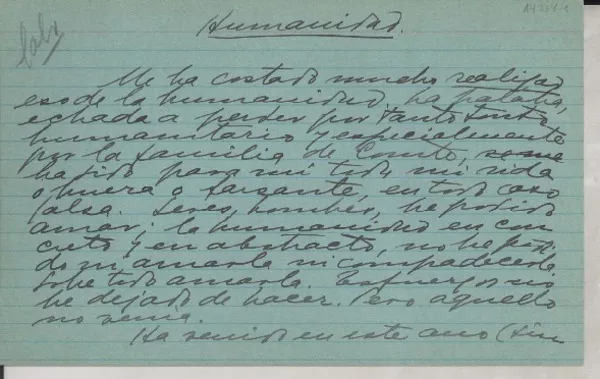 Humanidad.
Me ha costado mucho realizar
eso de la humanidad. La palabra,
echada a perder por tanto tonto
humanitario y especialmente
por la familia de Comte, se me
ha sido para mi toda mi vida
o huera o farsante, en todo caso
falsa. Seres, hombres, he podido
amar, la humanidad en con
creto y en abstracto, no he podi
do ni amarla ni compadecerla.
Sobre todo amarla. Esfuerzos no
he dejado de hacer. Pero aquello
no venía.
Ha venido en este ano (sin